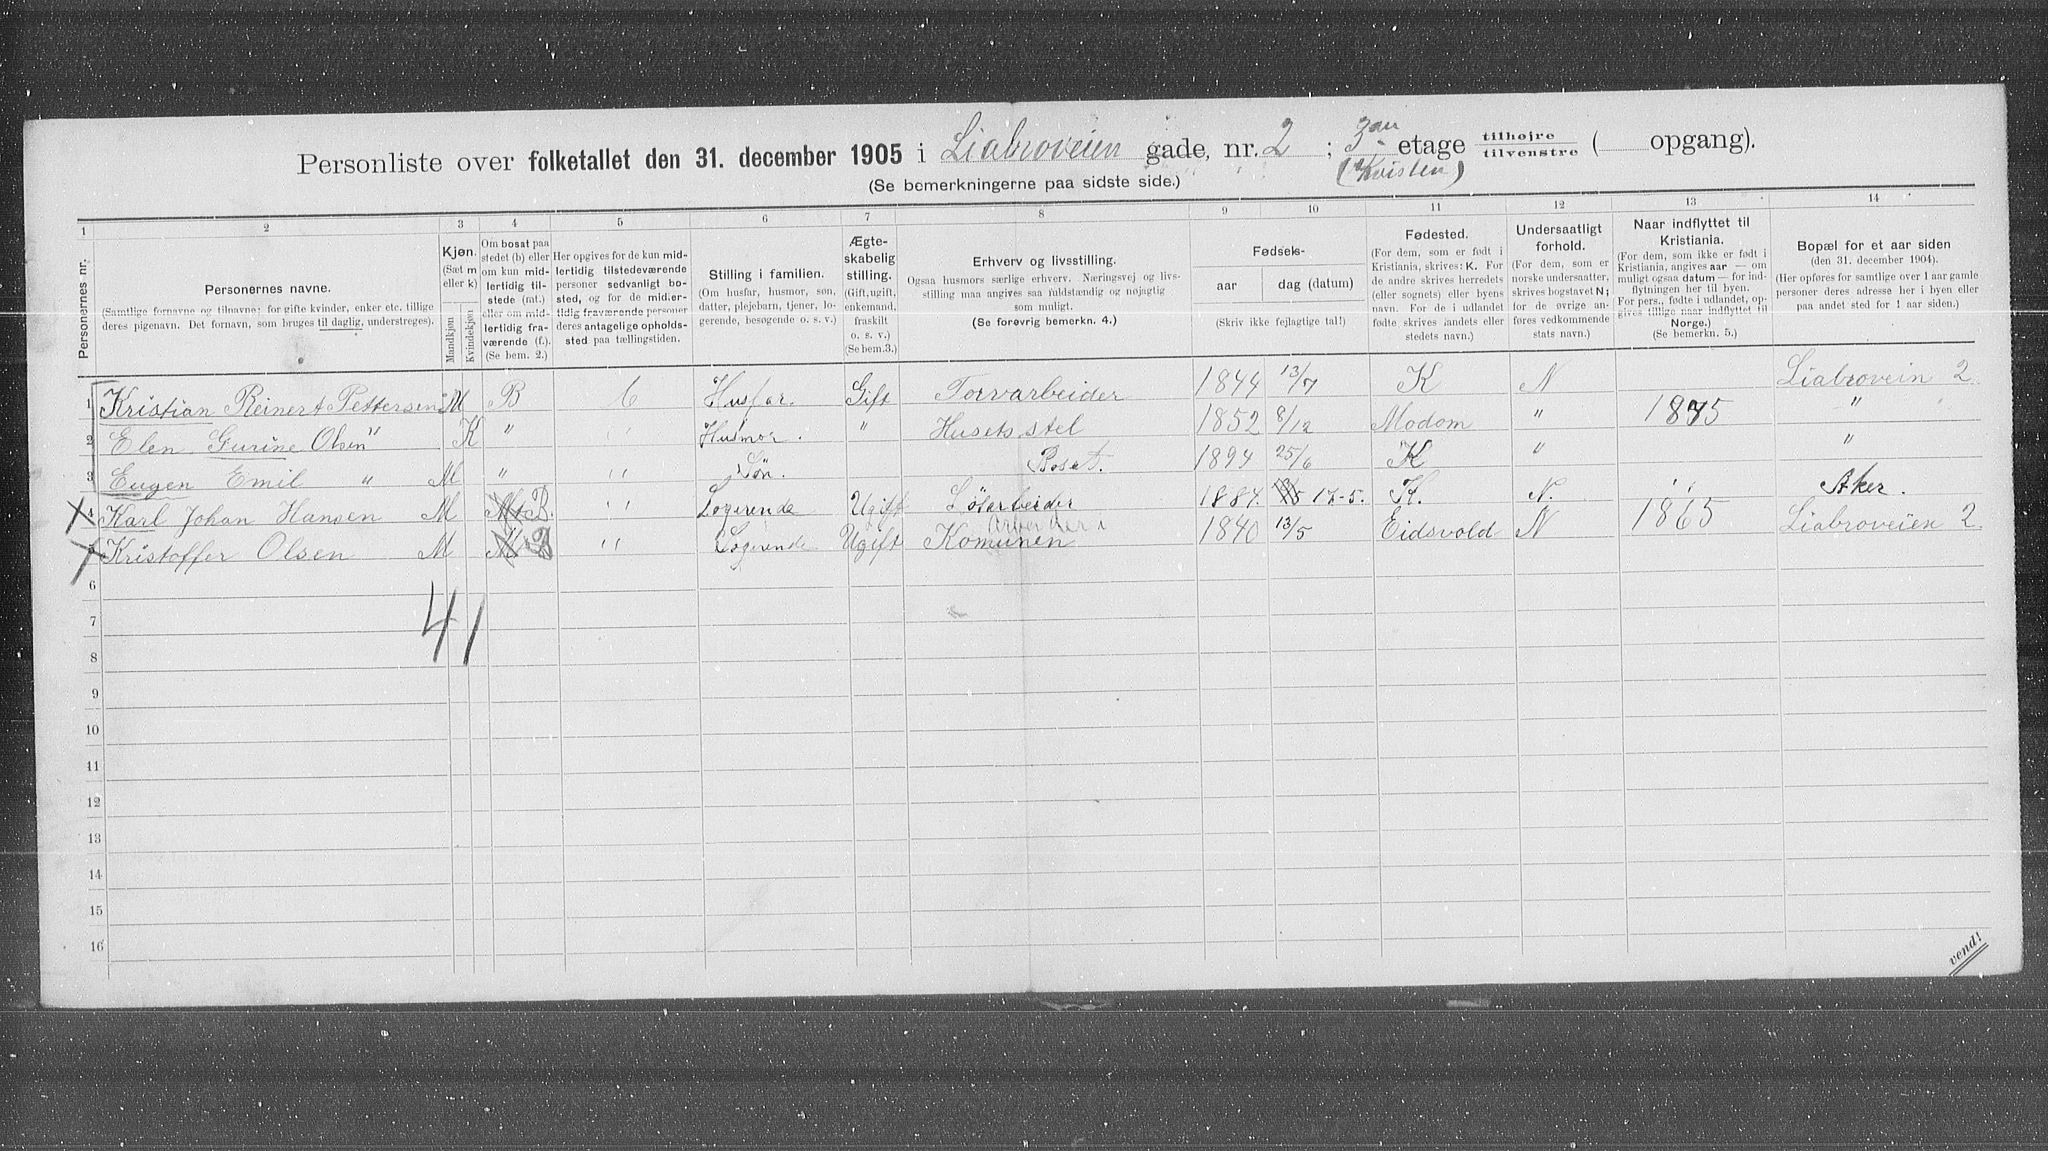 Personliste over folketallet den 31. december 1905 i Liabroveien gade, nr. 2 ; 3an etage tilhøjre / tilvenstre ( opgang).
(Kvisten)
(Se bemerkningerne paa sidste side.)
1 2 3 4 5 6 7 8 9 10 11 12 13 14
Personernes nr.
Personernes navne.
(Samtlige fornavne og tilnavne; for gifte kvinder, enker etc. tillige deres pigenavn. Det fornavn, som bruges til daglig, understreges).
Kjøn.
(Sæt m eller k)
Mandkjøn
Kvindekjøn
Om bosat paa stedet (b) eller om kun midlertidig tilstede (mt.) eller om midlertidig fraværende (f.).
(Se bem. 2.)
Her opgives for de kun midlertidig tilstedeværende personer sedvanligt bosted, og for de midlertidig fraværende personer deres antagelige opholdssted paa tællingstiden.
Stilling i familien.
(Om husfar, husmor, søn, datter, plejebarn, tjener, logerende, besøgende o. s. v.)
Ægteskabelig stilling.
(Gift, ugift, enkemand, fraskilt o. s. v.)
(Se bem.3.)
Erhverv og livsstilling.
Ogsaa husmors særlige erhverv. Næringsvej og livsstilling maa angives saa fuldstændig og nøjagtig som muligt.
(Se forøvrig bemerkn. 4.)
Fødsels-
aar dag (datum)
(Skriv ikke fejlagtige tal!)
Fødested.
(For dem, som er født i Kristiania, skrives: K. For de andre skrives herredets (eller sognets) eller byens navn. For de i udlandet fødte skrives landets eller stedets navn.)
Undersaatligt forhold.
(For dem, som er norske undersaatter, skrives bogstavet N; for de øvrige anføres vedkommende stats navn.)
Naar indflyttet til Kristiania.
(For dem, som ikke er født i Kristiania, angives aar — om muligt ogsaa datum — for indflytningen her til byen. For pers., fødte i udlandet, opgives tillige naar indflyttet til Norge.)
(Se bemerkn. 5.)
Bopæl for et aar siden
(den 31. december 1904).
(Her opføres for samtlige over 1 aar gamle personer deres adresse her i byen eller paa andet sted for 1 aar siden.)
1 Kristian Reinert Pettersen M B Husfar. Gift Torvarbeider 1844 13/7 K N Liabrovein 2
2 Elen Gurine Olsen " K " Husmor. " Husets stel 1852 8/12 Modom " 1875 "
3 Eugen Emil " M " Søn. 1894 25/6 K " "
4 Karl Johan Hansen M B. Logerende Ugift 1884. 17-5. K. N. Aker.
5 Kristoffer Olsen M B Logerende Ugift Arbeider i Komunen 1840 13/5 Eidsvold N 1865 Liabroveien 2
6
7
8
9
10
11
12
13
14
15
16
4 1
vend!